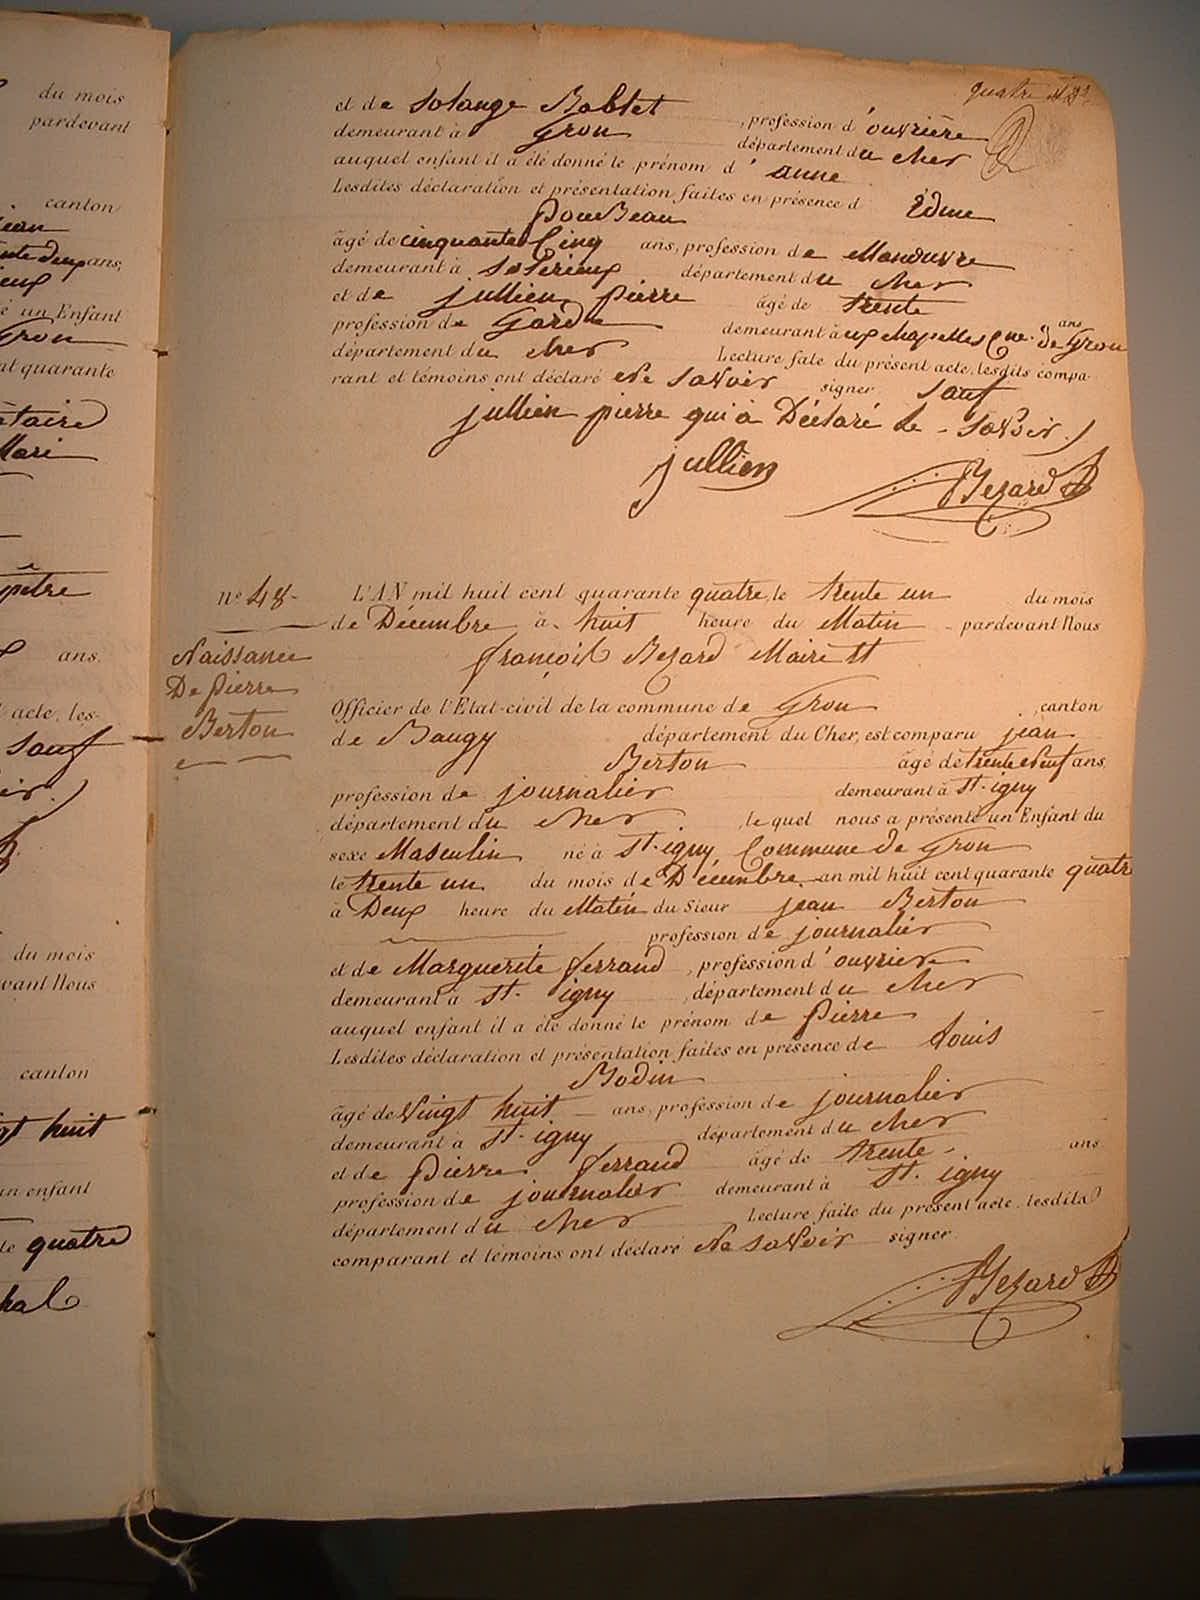 du mois
pardevant
canton
ans,
un Enfant
Gron
quarante
Mari
ans.
acte, les-
sauf
du mois
vant Nous
canton
huit
un enfant
quatre
quatre
et de Solange Bablet, profession d'ouvrière
demeurant à Gron département du cher
auquel enfant il a été donné le prénom d'anne
Lesdites déclaration et présentation faites en présence d Edme
PouBeau
âgé de cinquante Cinq ans, profession de Manœuvre
demeurant à département du cher
et de jullien pierre âgé de trente ans
profession de Garde demeurant à aux chapelles Cne. de Gron
département du cher Lecture faite du présent acte, lesdits compa-
rant et témoins ont déclaré ne savoir signer sauf
jullien pierre qui a Déclaré le savoir./
jullien
Bezard
n° 48 -
Naissance
De pierre
Berton
L'AN mil huit cent quarante quatre, le trente un du mois
de Décembre à huit heure du Matin pardevant Nous
françois Bezard Maire et
Officier de l'Etat-civil de la commune de Gron canton
de Baugy département du Cher, est comparu jean
Berton âgé de trente neuf ans,
profession de journalier demeurant à St. igny
département du cher, lequel nous a présenté un Enfant du
sexe Masculin né à St. igny Commune de Gron
le trente un du mois de Décembre an mil huit cent quarante quatre
à Deux heure du Matin du Sieur jean Berton
profession de journalier
et de Marguerite ferrand, profession d'ouvriere
demeurant à St. igny, département du cher
auquel enfant il a été donné le prénom de pierre
Lesdites déclaration et présentation faites en présence de Louis
Bodin
âgé de Vingt huit ans, profession de journalier
demeurant à St. igny département du cher
et de pierre ferrand âgé de trente ans
profession de journalier demeurant à St. igny
département du cher Lecture faite du présent acte, lesdits
comparant et témoins ont déclaré Ne savoir signer.
Bezard